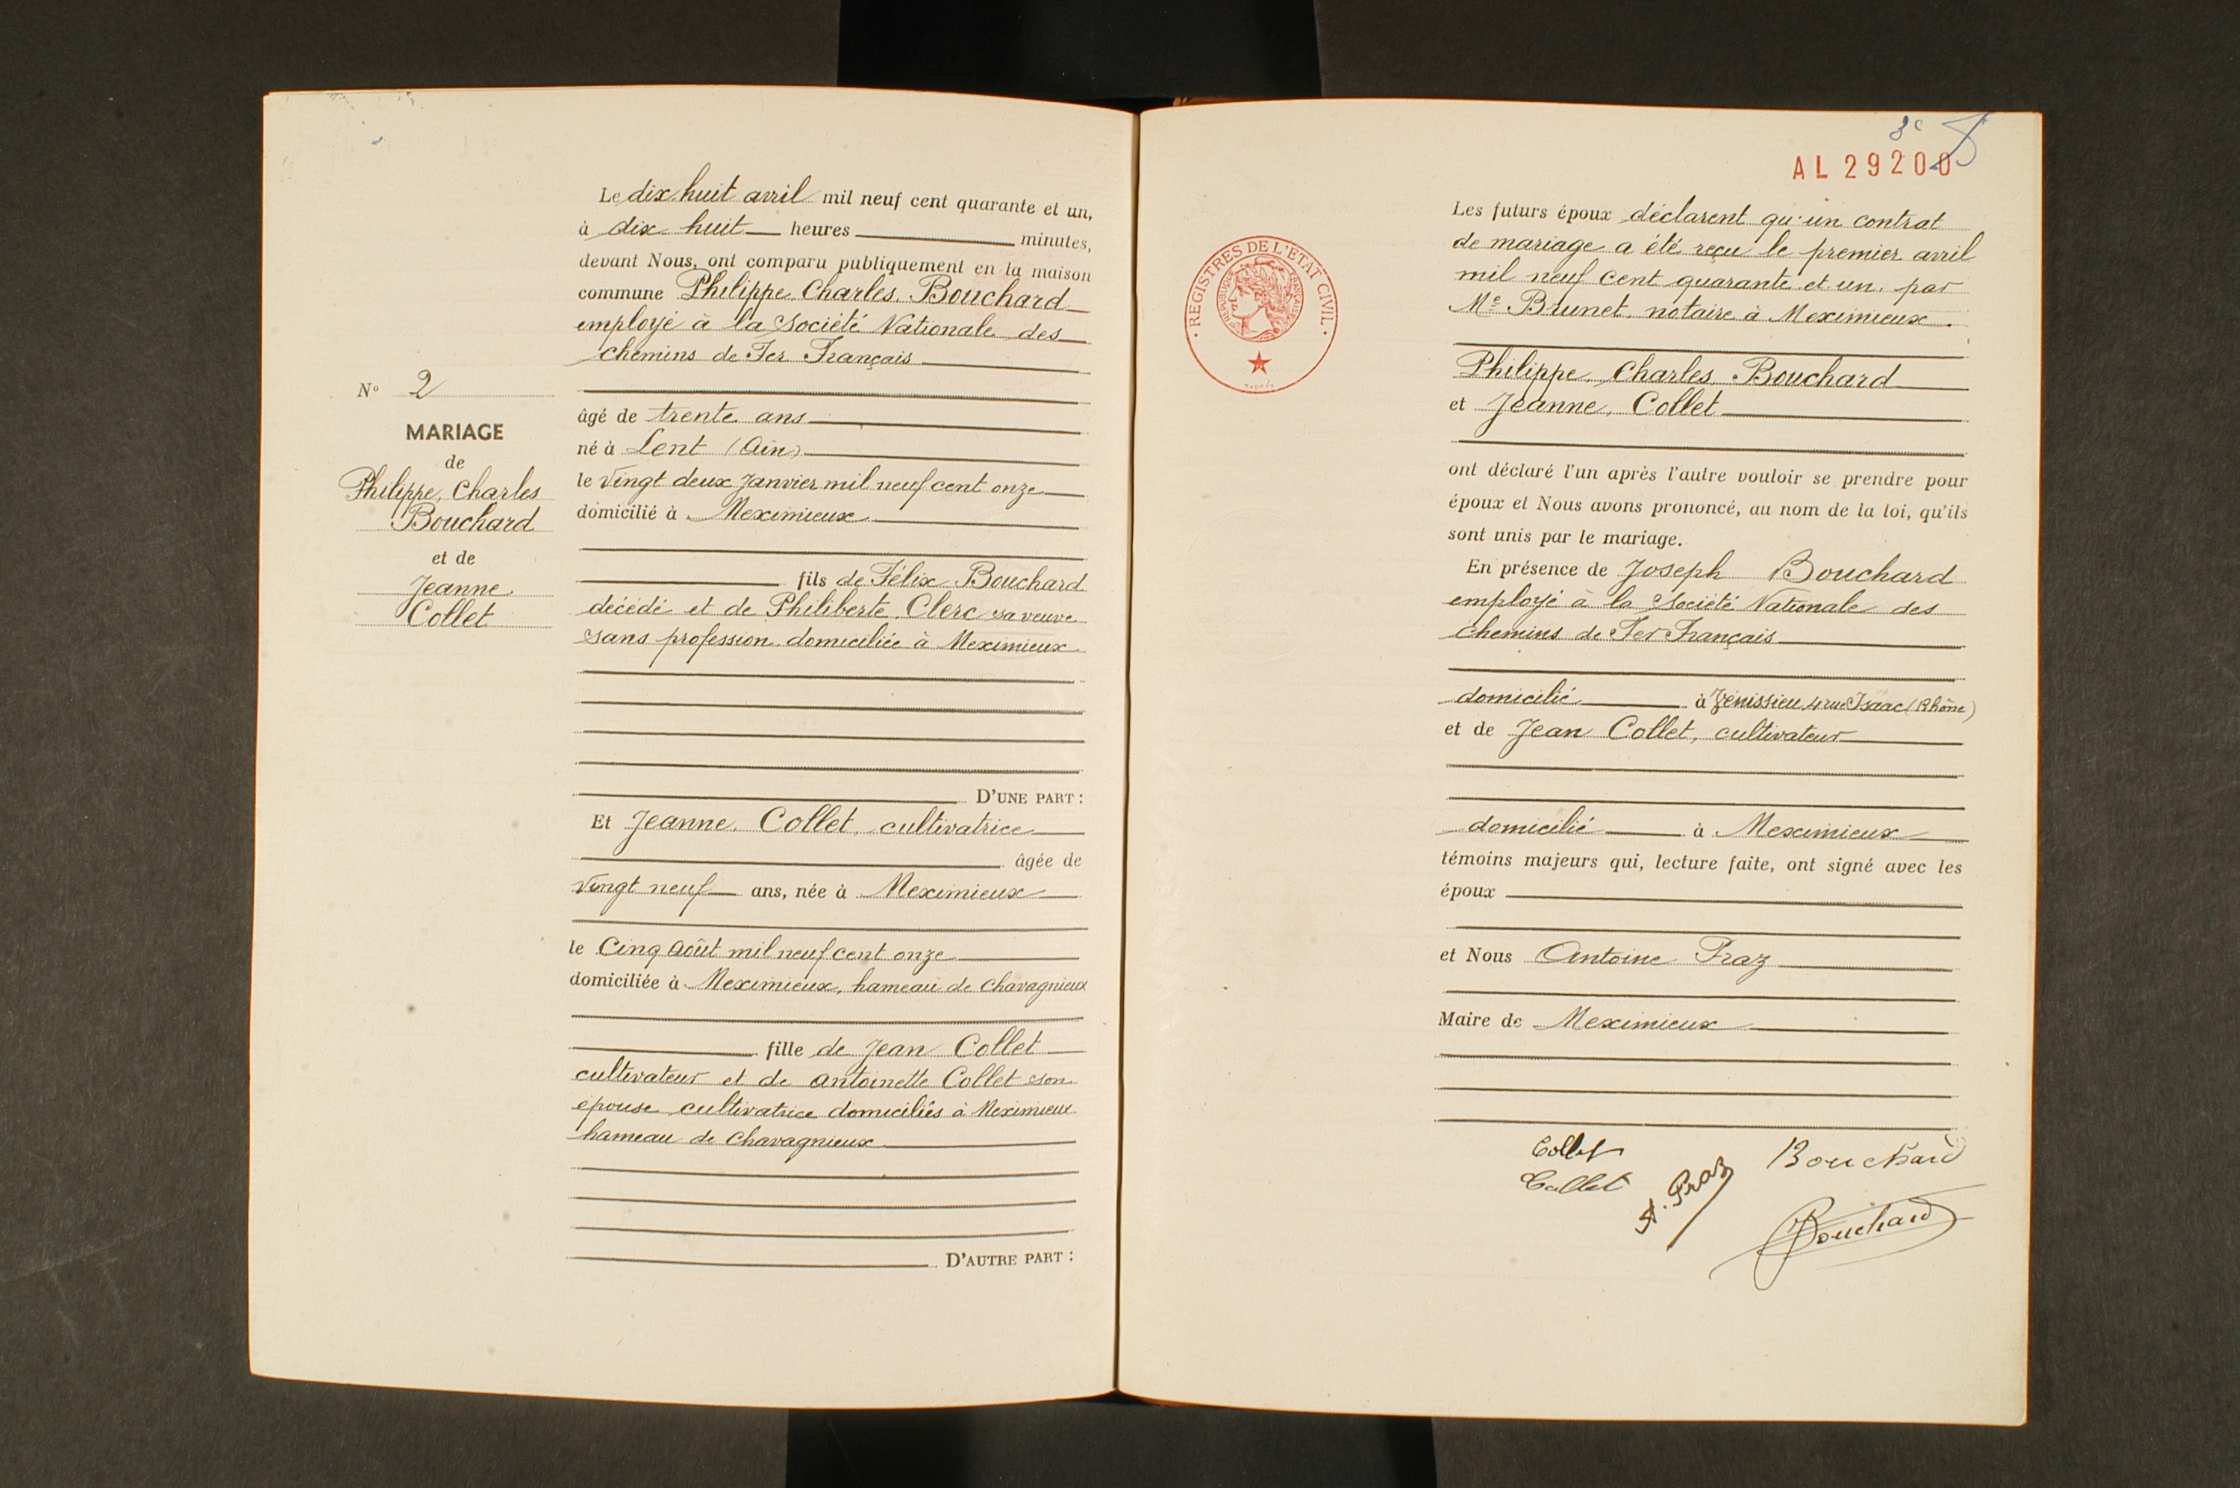 N° 2
MARIAGE
de
Philippe, Charles
Bouchard
et de
Jeanne
Collet
Le dix huit avril mil neuf cent quarante et un,
à dix huit heures minutes,
devant Nous, ont comparu publiquement en la maison
commune Philippe Charles Bouchard
employé à la Société Nationale des
chemins de Fer Français
âgé de trente ans
né à Lent (Ain)
le Vingt deux Janvier mil neuf cent onze
domicilié à Meximieux
fils de Félix Bouchard
décédé et de Philiberte Clerc sa veuve
sans profession domiciliée à Meximieux
D'UNE PART :
Et Jeanne Collet cultivatrice
âgée de
Vingt neuf ans, née à Meximieux
le Cinq Août mil neuf cent onze
domiciliée à Meximieux, hameau de Chavagnieux
fille de Jean Collet
cultivateur et de Antoinette Collet son
épouse cultivatrice domiciliés à Meximieux
hameau de Chavagnieux
D'AUTRE PART :
3e
AL 29200
· REGISTRES DE L'ÉTAT CIVIL ·
RÉPUBLIQUE FRANÇAISE
Les futurs époux déclarent qu'un contrat
de mariage a été reçu le premier avril
mil neuf cent quarante et un, par
Me Brunet, notaire à Meximieux.
Philippe, Charles Bouchard
et Jeanne, Collet
ont déclaré l'un après l'autre vouloir se prendre pour
époux et Nous avons prononcé, au nom de la loi, qu'ils
sont unis par le mariage.
En présence de Joseph Bouchard
employé à la Société Nationale des
chemins de Fer Français
domicilié à Vénissieu 4 rue Isaac (Rhône)
et de Jean Collet, cultivateur
domicilié à Meximieux
témoins majeurs qui, lecture faite, ont signé avec les
époux
et Nous Antoine Praz
Maire de Meximieux
Collet
Collet
A. Praz
Bouchard
Bouchard